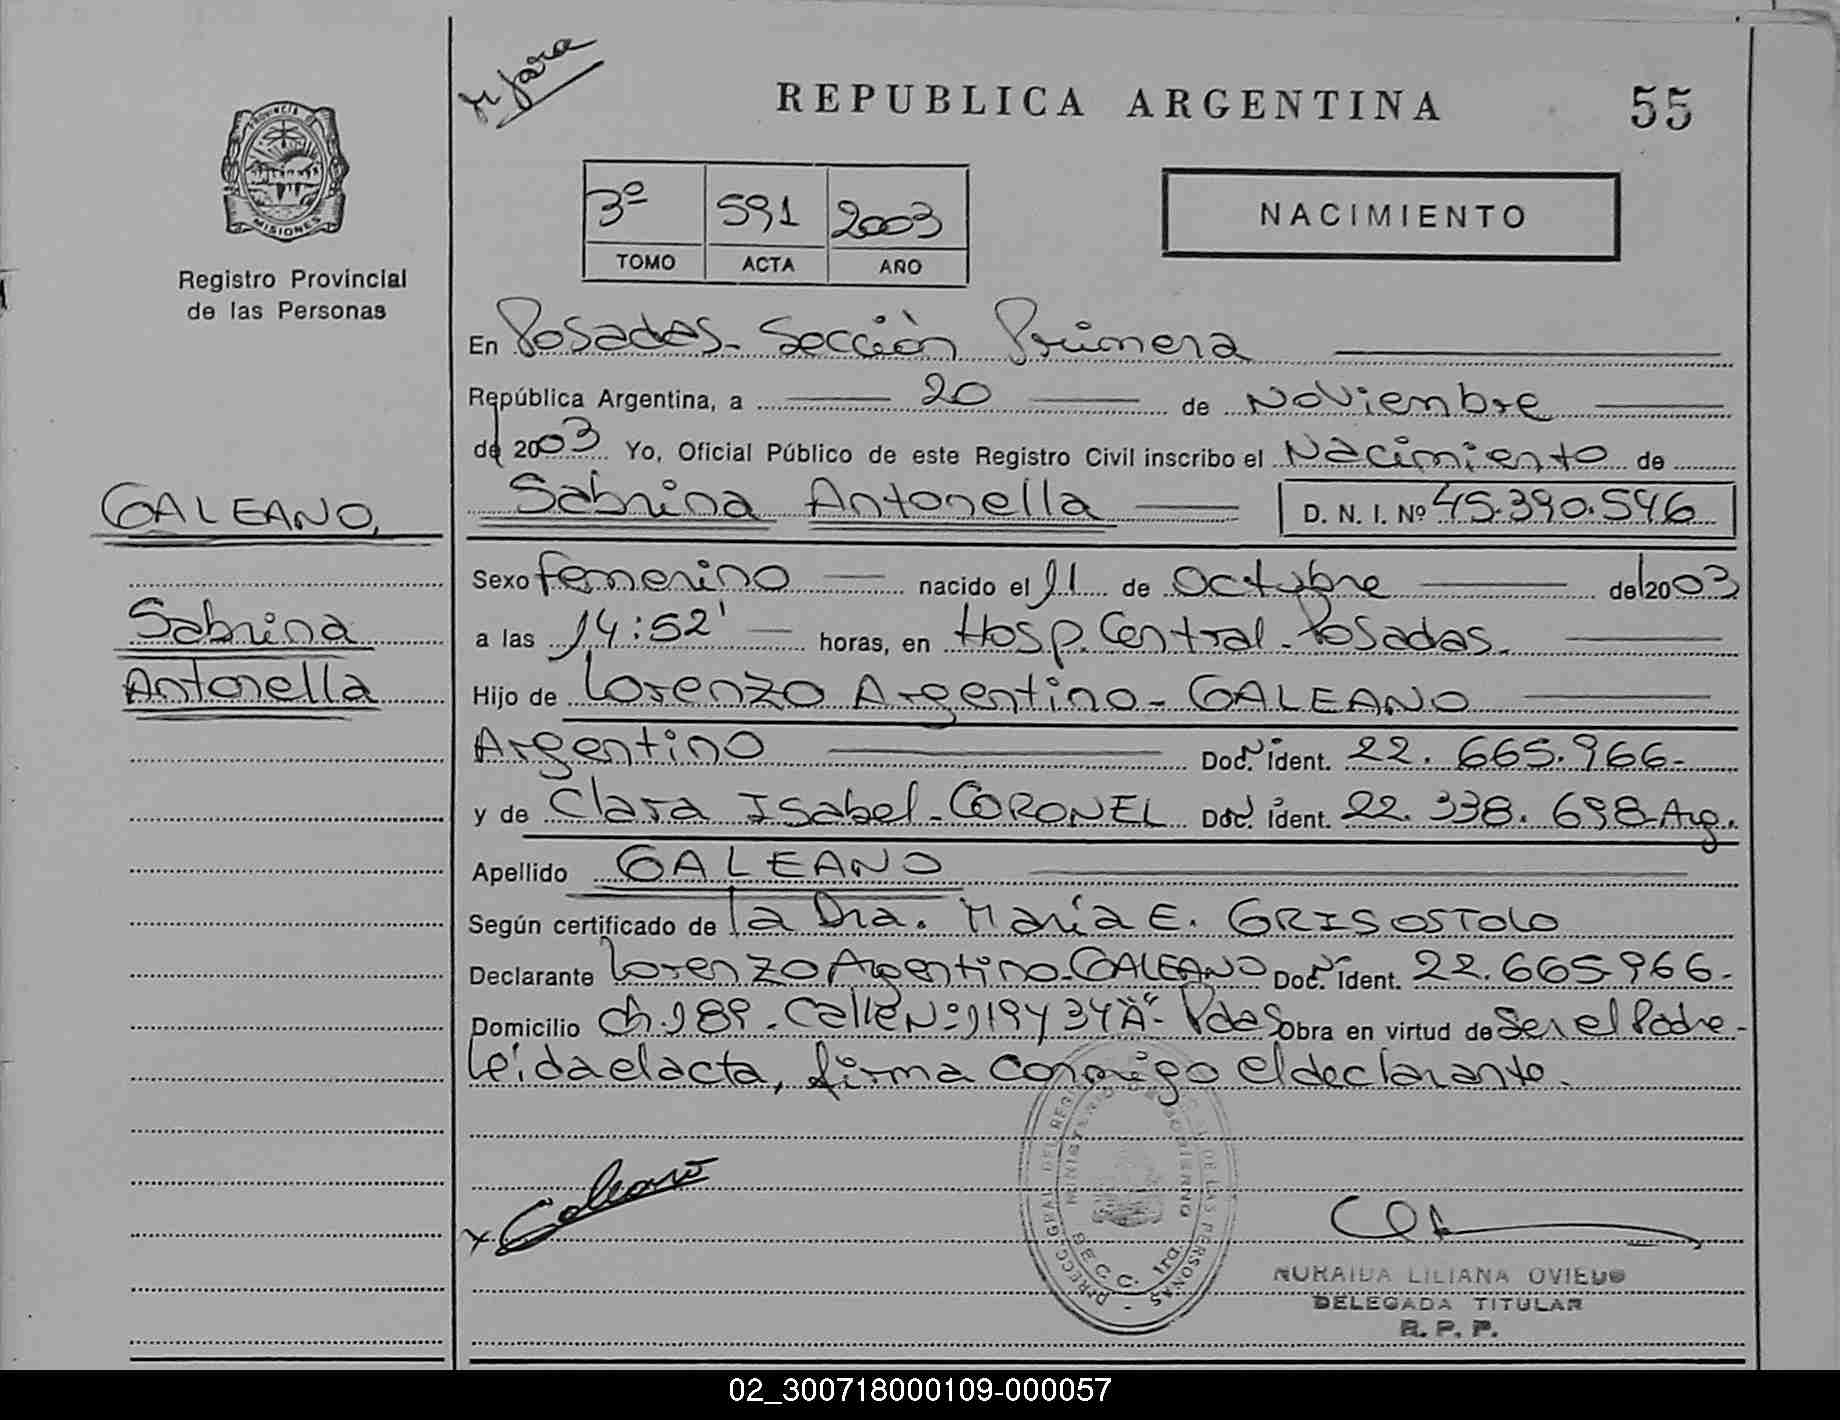 Rp fara
REPUBLICA ARGENTINA 55
PROVINCIA DE MISIONES
Registro Provincial
de las Personas
3º 591 2003
TOMO ACTA AÑO
NACIMIENTO
En Posadas - Sección Primera
República Argentina, a 20 de Noviembre
de 2003 Yo, Oficial Público de este Registro Civil inscribo el Nacimiento de
GALEANO,
Sabrina Antonella D. N. I. Nº 45.390.546
Sabrina
Antonella
Sexo femenino nacido el 11 de Octubre de 2003
a las 14:52' horas, en Hosp. Central - Posadas.
Hijo de Lorenzo Argentino - GALEANO
Argentino Doc. ident. 22.665.966-
y de Clara Isabel - CORONEL Doc. ident. 22.338.698-Arg.
Apellido GALEANO
Según certificado de la Dra. María E. GRISOSTOLO
Declarante Lorenzo Argentino - GALEANO Doc. ident. 22.665966-
Domicilio Ch. 189 - Calle Nº 119 y 34 "A" - Pdas Obra en virtud de Ser el Padre -
Leída el acta, firma conmigo el declarante.
x Galeano
MINISTERIO DE GOBIERNO
SECC. 1ra.
NORAIDA LILIANA OVIEDO
DELEGADA TITULAR
R. P. P.
02_300718000109-000057